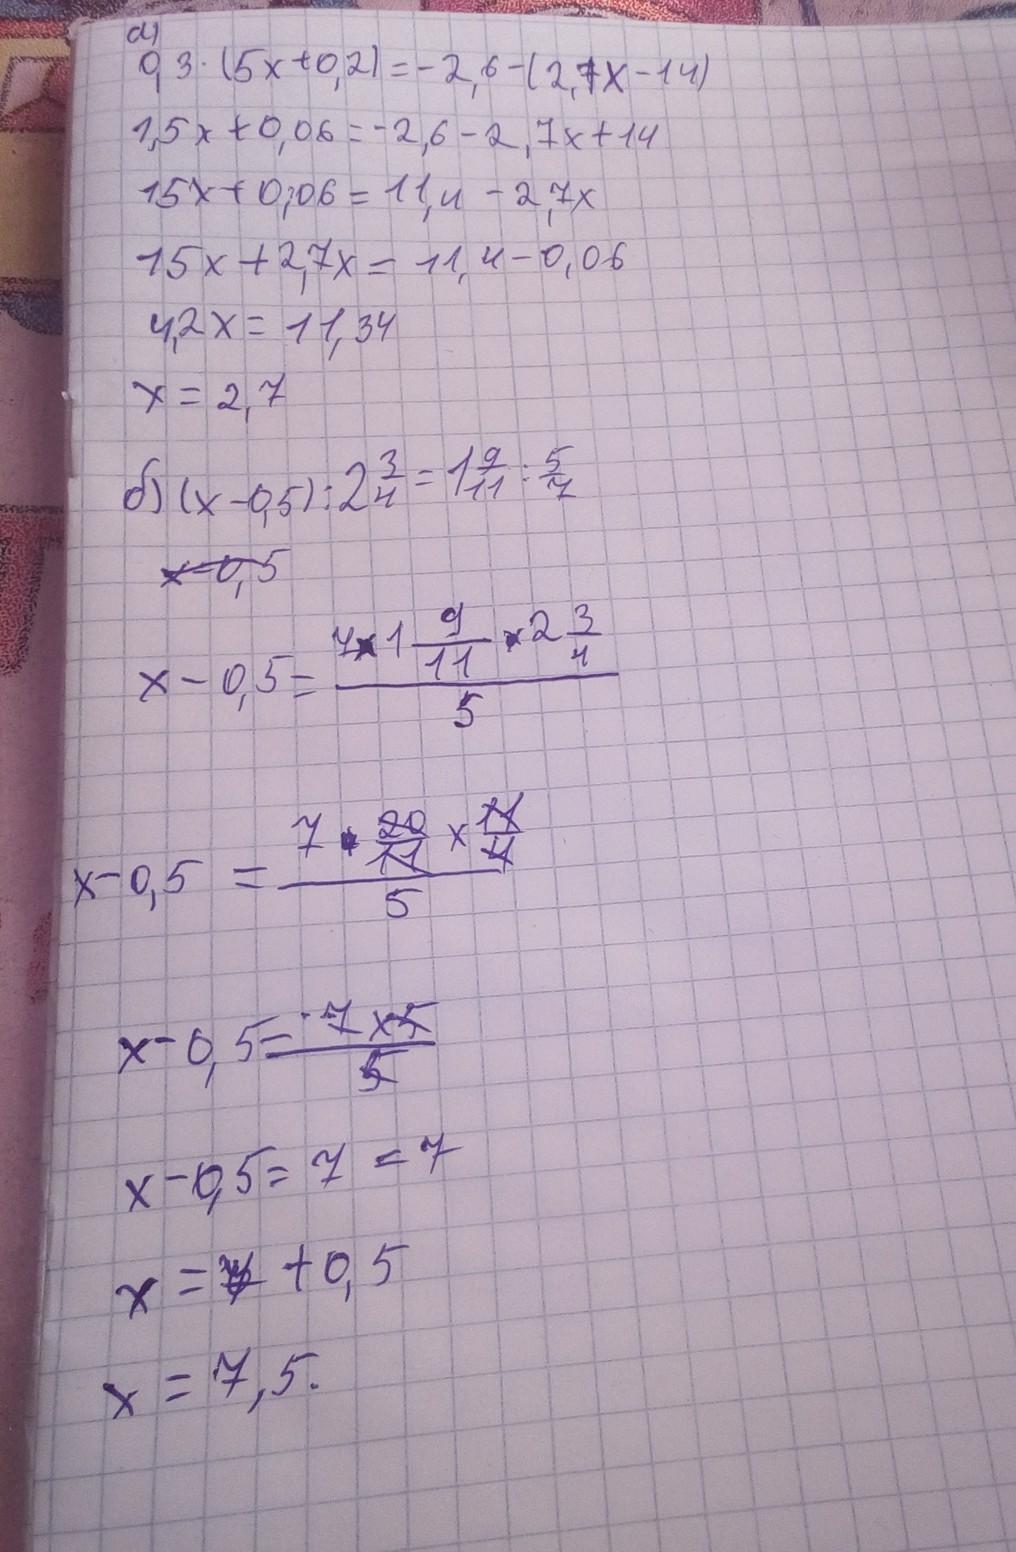 а)
0,3·(5x+0,2)=-2,6-(2,7x-14)
1,5x+0,06=-2,6-2,7x+14
15x+0,06=11,4-2,7x
15x+2,7x=11,4-0,06
4,2x=11,34
x=2,7
б) (x-0,5):2 3/4=1 9/11:5/7
x-0,5
x-0,5=(7×1 9/11×2 3/4)/5
x-0,5=(7·20/11×11/4)/5
x-0,5=(7×5)/5
x-0,5=7=7
x=7+0,5
x=7,5.